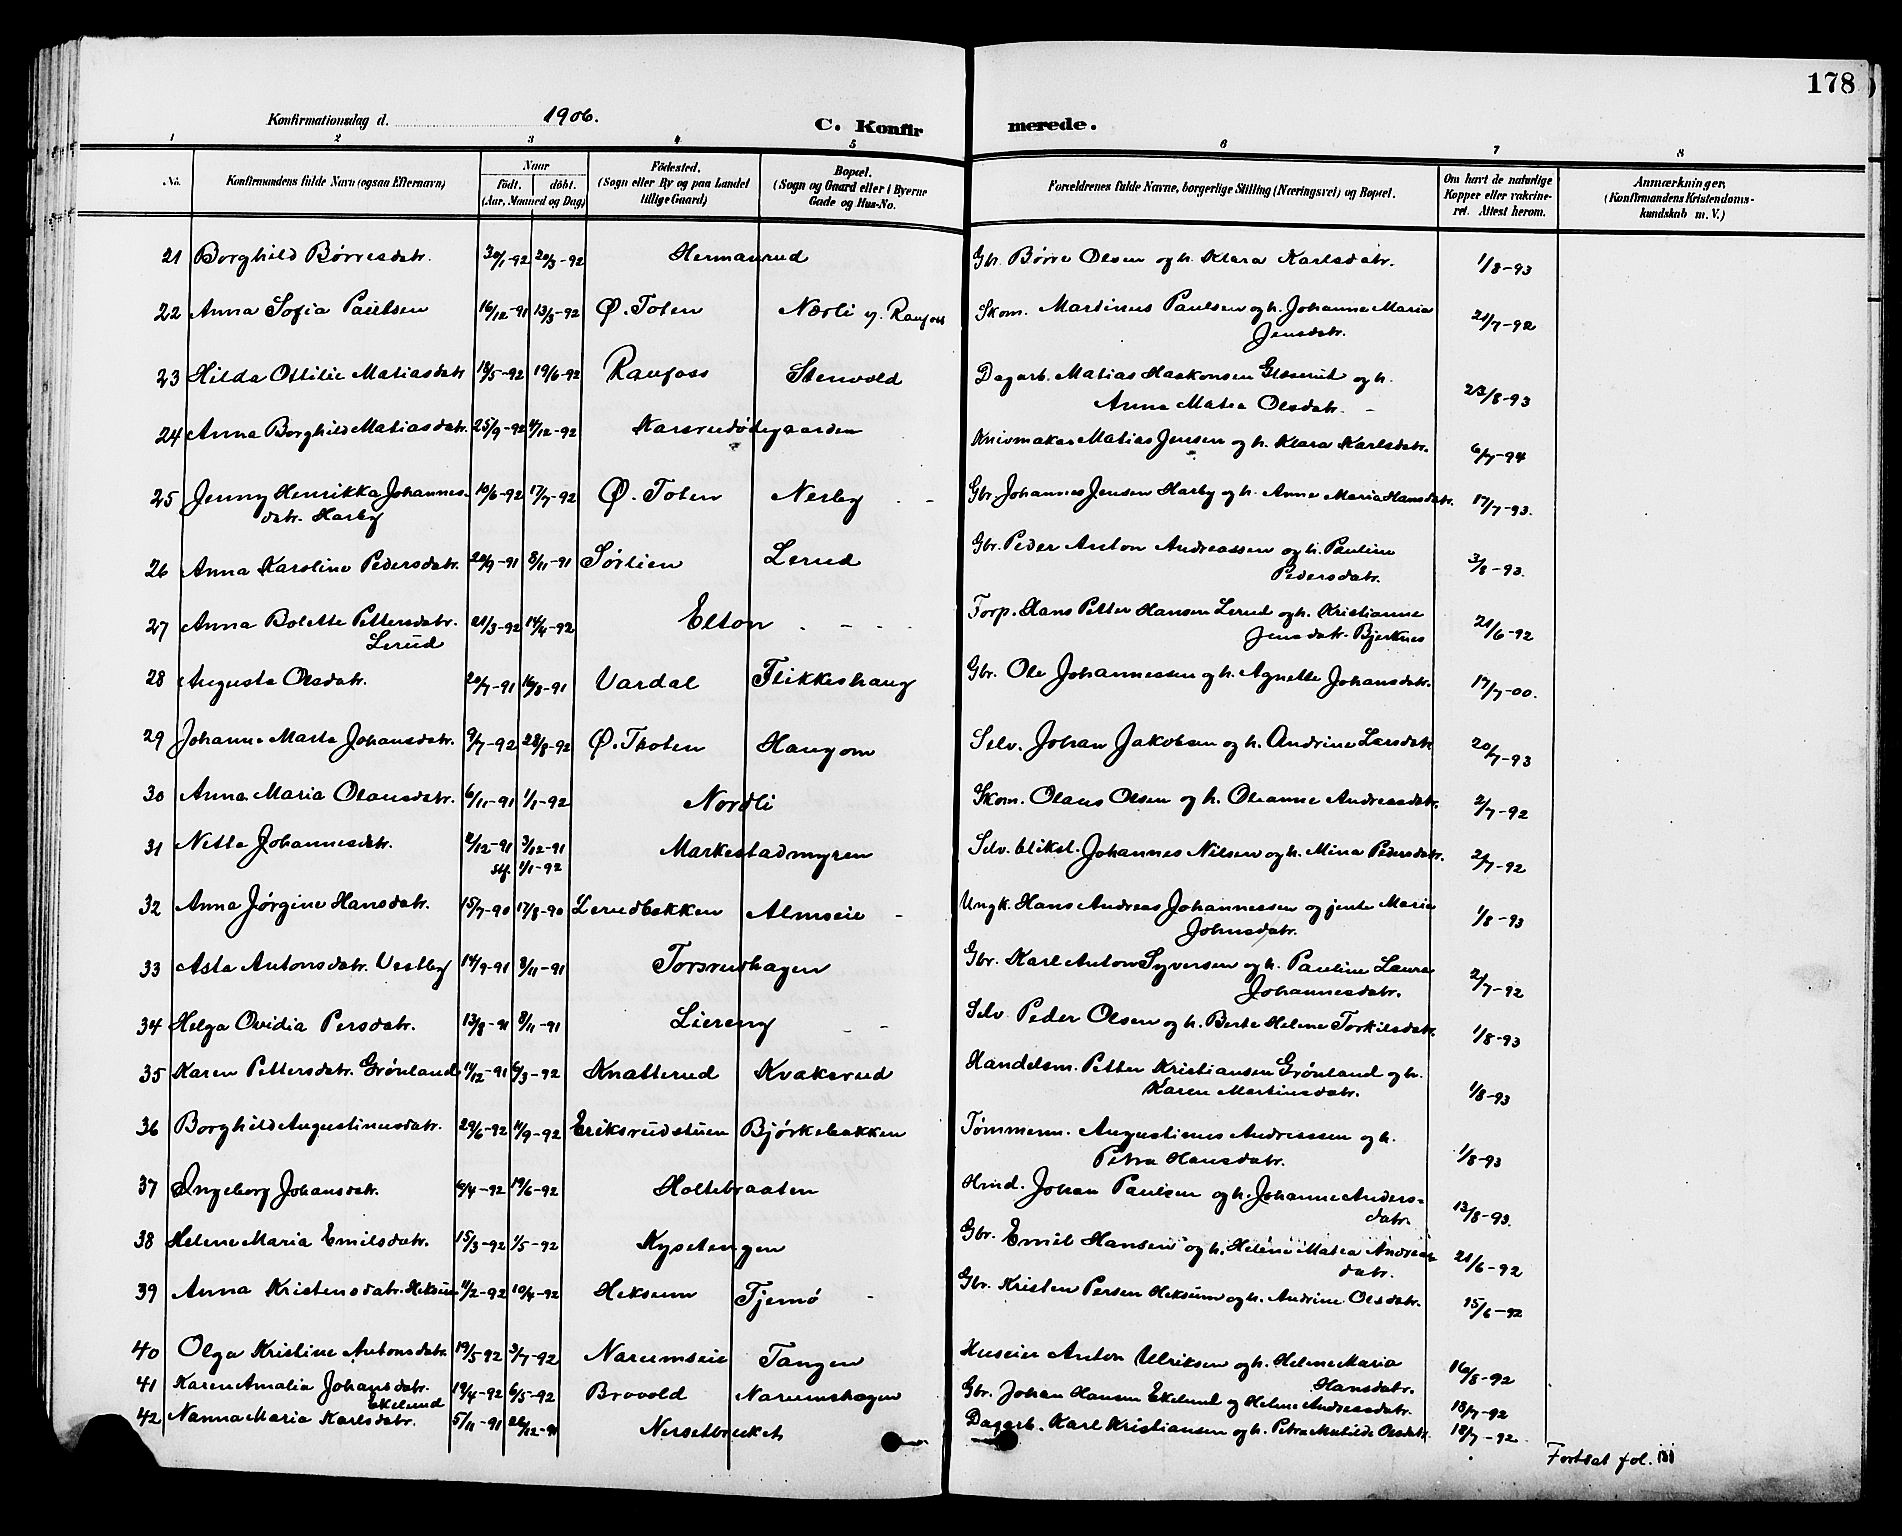 178
Konfirmationsdag d. 1906.
C. Konfirmerede.
1 2 3 4 5 6 7 8
No.
Konfirmandens fulde Navn (ogsaa Efternavn)
Naar
født. døbt.
(Aar, Maaned og Dag)
Fødested.
(Sogn eller By og paa Landet
tillige Gaard)
Bopæl.
(Sogn og Gaard eller i Byerne
Gade og Hus-No.
Forældrenes fulde Navne, borgerlige Stilling (Næringsvei) og Bopæl.
Om havt de naturlige
Kopper eller vakcine-
ret. Attest herom.
Anmærkninger,
(Konfirmandens Kristendoms-
kundskab m. V.)
21 Borghild Børresdatr. 30/1-92 20/3-92 Hermanrud Gbr. Børre Olsen og h. Klara Karlsdatr. 1/8-93
22 Anna Sofia Paulsen 16/12-91 13/3-92 Ø. Toten Nærli v. Raufoss Skom. Martinus Paulsen og h. Johanne Maria
Jensdatr. 21/7-92
23 Hilda Ottilie Matiasdatr 18/5-92 19/6-92 Raufoss Stenvold Dagarb. Matias Haakonsen Glæserud og h.
Anne Matea Olsdatr. 23/8-93
24 Anna Borghild Matiasdatr. 25/9-92 4/12-92 Karsrudødegaarden Knivmaker Matias Jensen og h. Klara Karlsdatr. 6/7-94
25 Jenny Henrikka Johannes-
datr. Harby 10/6-92 17/7-92 Ø. Toten Nerby Gbr. Johannes Jensen Harby og h. Anne Maria Hansdatr. 17/7-93.
26 Anna Karoline Pedersdatr. 20/9-91 8/11-91 Sørlien Lerud Gbr. Peder Anton Andreassen og h. Pauline
Pedersdatr. 3/8-93.
27 Anna Bolette Pettersdatr.
Lerud 21/3-92 14/4-92 Elton Torp. Hans Petter Hansen Lerud og h. Kristianne
Jensdatr. Bjerknes 21/6-92
28 Augusta Olsdatr. 20/7-91 16/8-91 Vardal Flikkeshaug Gbr. Ole Johannessen og h. Agnette Johansdatr. 17/7-00.
29 Johanne Marta Johansdatr. 9/7-92 28/8-92 Ø. Thoten Haugom Selv. Johan Jakobsen og h. Andrine Larsdatr 20/7-93
30 Anna Maria Olausdatr. 6/11-91 1/1-92 Nordli Skom. Olaus Olsen og h. Oleanne Andreasdatr. 2/7-92
31 Netta Johannesdatr. 2/12-91 3/12-91
stf. 1/1-92 Markestadmyren Selv. bliksl. Johannes Nilsen og h. Mina Pedersdatr. 2/7-92
32 Anna Jørgine Hansdatr. 15/7-90 17/8-90 Lerudbakken Almseie Ungk. Hans Andreas Johannessen og jente Marie
Johnsdatr. 1/8-93
33 Asta Antonsdatr. Vestby 14/9-91 8/11-91 Torsrudhagen Gbr. Karl Anton Syversen og h. Pauline Laura
Johannesdatr. 2/7-92
34 Helga Ovidia Persdatr. 13/8-91 8/11-91 Liereng Selv. Peder Olsen og h. Berte Helene Torkilsdatr. 1/8-93
35 Karen Pettersdatr. Grønland 11/12-91 6/3-92 Knatterud Kvakerud Handelsm. Petter Kristiansen Grønland og h.
Karen Martinsdatr. 1/8-93
36 Borghild Augustinusdatr. 29/6-92 11/9-92 Eriksrudstuen Bjørkebakken Tømmerm. Augustinus Andreassen og h.
Petra Hansdatr. 1/8-93
37 Ingeborg Johansdatr. 6/4-92 19/6-92 Holtebraaten Hmd. Johan Paulsen og h. Johanne Anders-
datr. 13/8-93.
38 Helene Maria Emilsdatr. 15/3-92 1/5-92 Kysetengen Gbr. Emil Hansen og h. Helene Matea Andreas-
datr. 21/6-92
39 Anna Kristensdatr. Heksum 11/2-92 10/4-92 Heksum Tjernø Gbr. Kristen Persen Heksum og h. Andrine Olsdatr. 15/6-92
40 Olga Kristine Antonsdatr. 19/5-92 3/7-92 Narumseie Tangen Huseier Anton Ulriksen og h. Helene Maria
Hansdatr. 16/8-92
41 Karen Amalia Johansdatr.
Ekelund 19/4-92 6/5-92 Brovold Narumshagen Gbr. Johan Hansen Ekelund og Helene Andreasdatr. 18/7-92
42 Nanna Maria Karlsdatr. 5/11-91 26/12-91 Nersetbruket Dagarb. Karl Kristiansen og h. Petra Mathilde Olsdatr. 18/7-92
Fortsat fol. 181